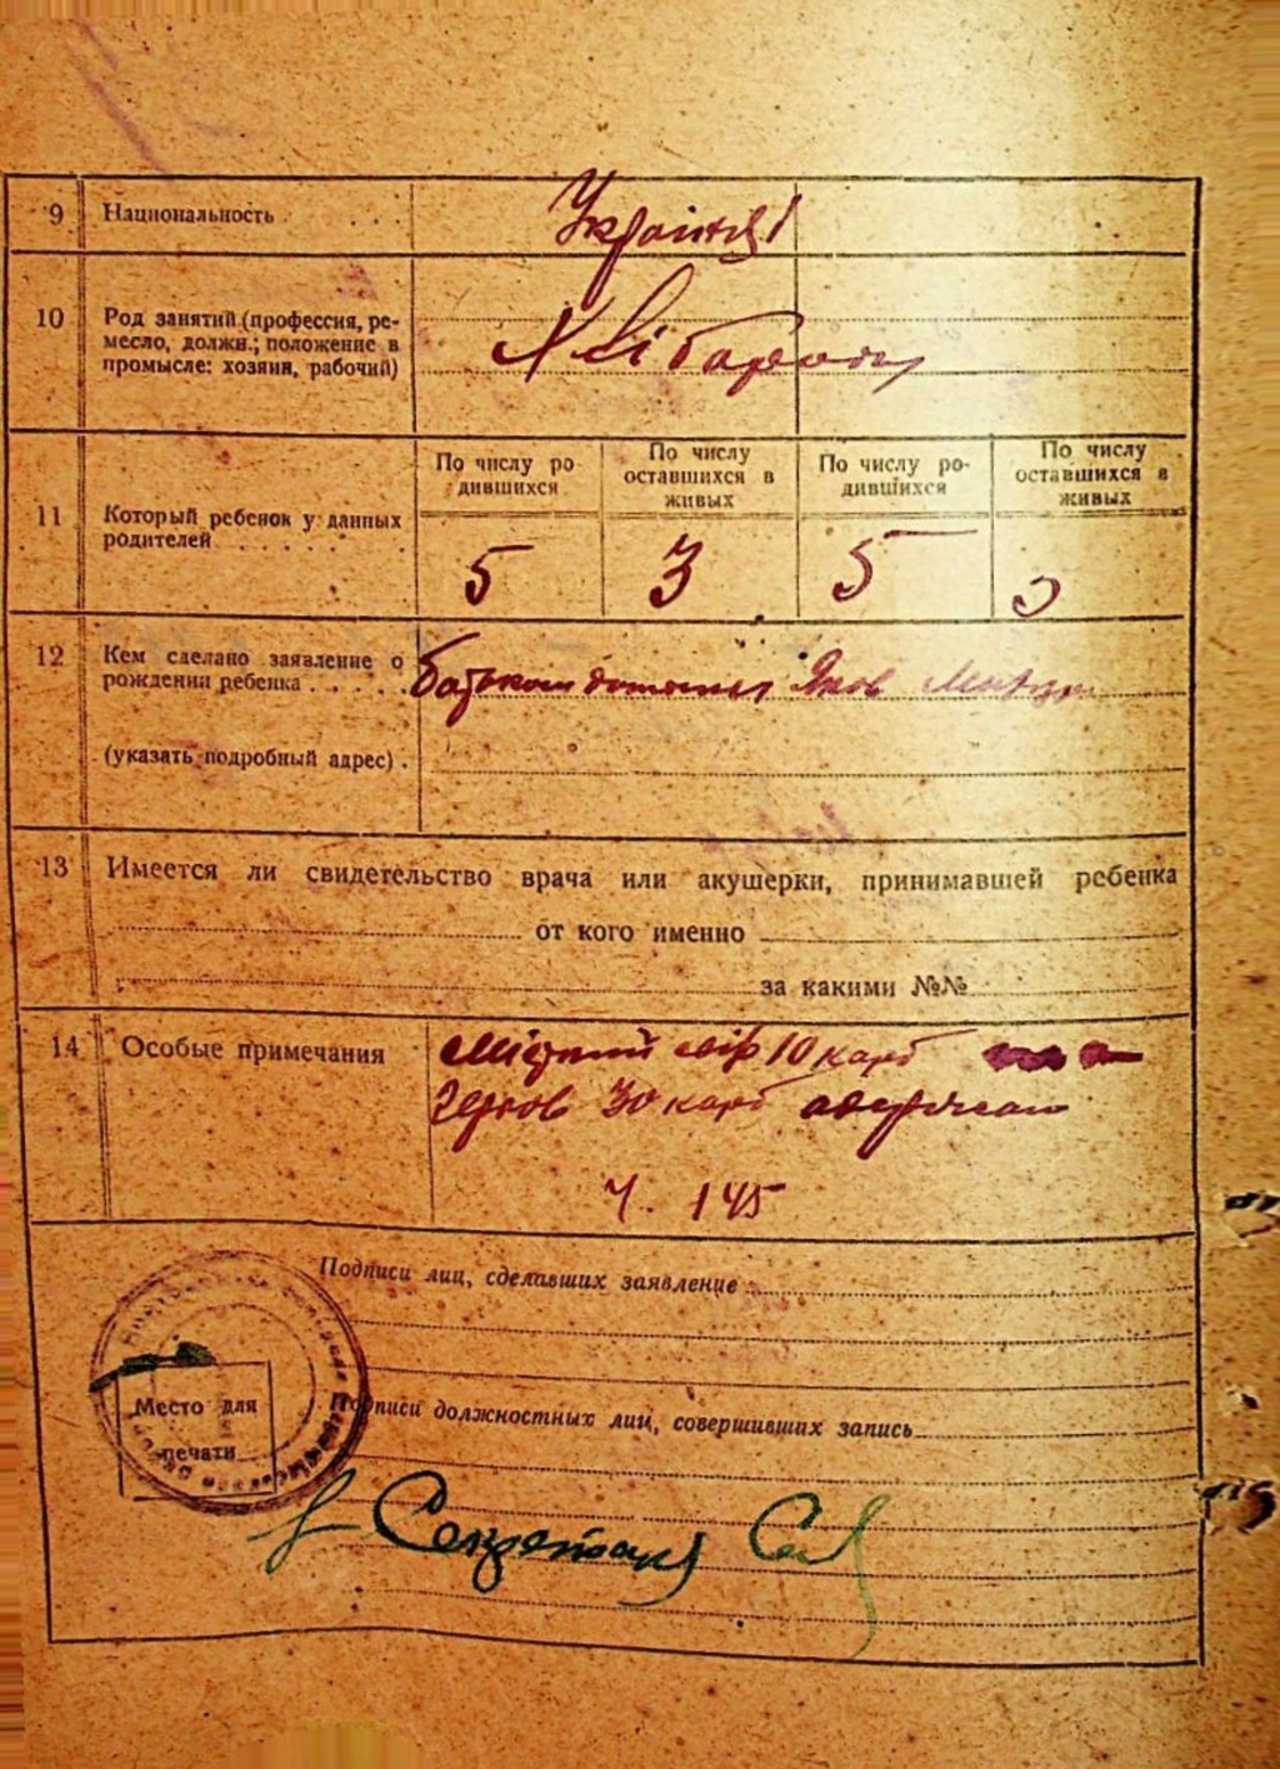 9 Национальность . . . Українці
10 Род занятий (профессия, ре-
месло, должн.; положение в
промысле: хозяин, рабочий)
Хлібароби
По числу ро-
дившихся
По числу
оставшихся в
живых
По числу ро-
дившихся
По числу
оставшихся в
живых
11 Который ребенок у данных
родителей . . . . . .
5 3 5
12 Кем сделано заявление о
рождении ребенка . . . . . Батьком Яков
(указать подробный адрес) .
13 Имеется ли свидетельство врача или акушерки, принимавшей ребенка
от кого именно
за какими №№
14 Особые примечания
10 карб
30 карб
ч. 145
Подписи лиц, сделавших заявление
Место для
печати
Подписи должностных лиц, совершивших запись
Секретарь